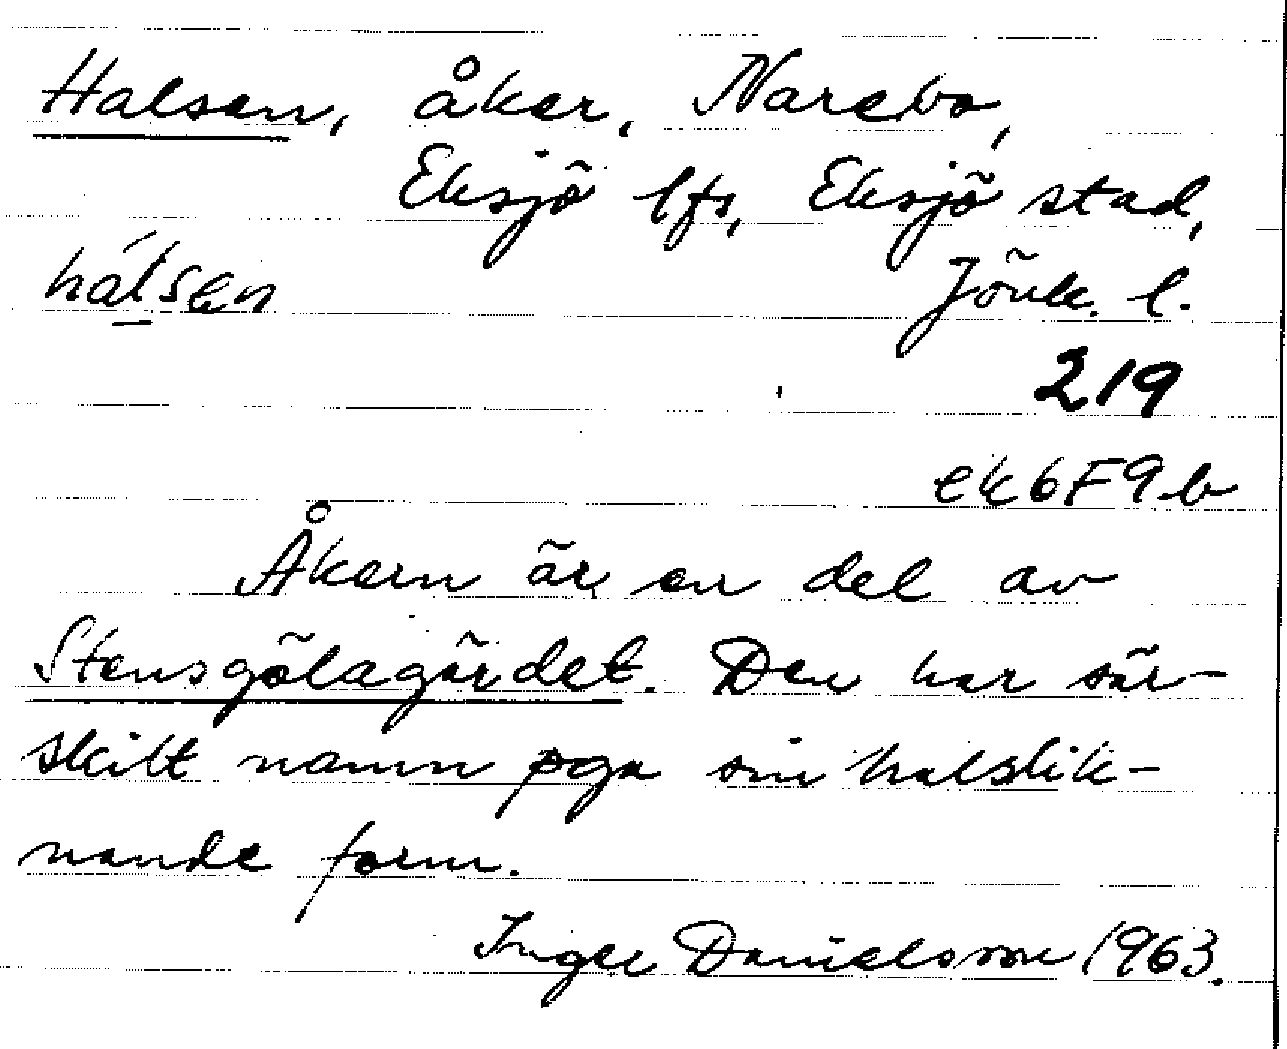 Halsen, åker, Narebo,
Eksjö lfs, Eksjö stad,
hálsen Jönk. l.
219
ek 6F9b
Åkern är en del av
Stensgölagärdet. Den har sär-
skilt namn pga sin halslik-
nande form.
Inger Danielsson 1963.